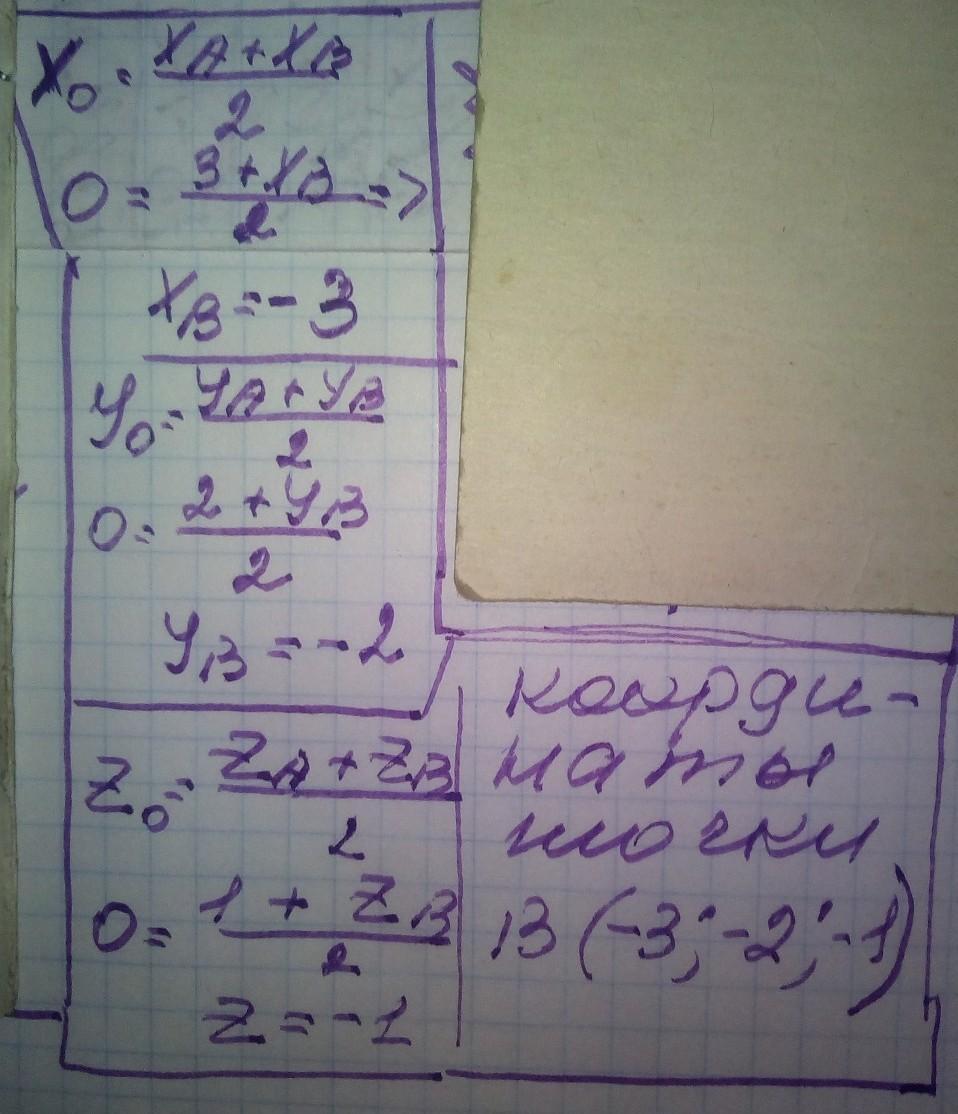 X₀ = (XA + XB)/2
0 = (3 + XB)/2 =>
XB = -3
y₀ = (yA + yB)/2
0 = (2 + yB)/2
yB = -2
Z₀ = (ZA + ZB)/2
0 = (1 + ZB)/2
Z = -1
коорди-
наты
точки
B (-3; -2; -1)